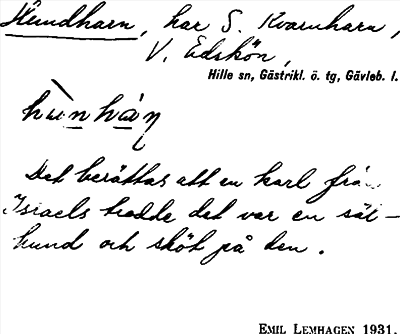 Hundharn, har S. Kvarnharn,
V. Edskön,
Hille sn, Gästrikl. ö. tg, Gävleb. l.
hùnhàɳ
Det berättas att en karl från
Israels trodde det var en säl-
hund och sköt på den.
EMIL LEMHAGEN 1931.